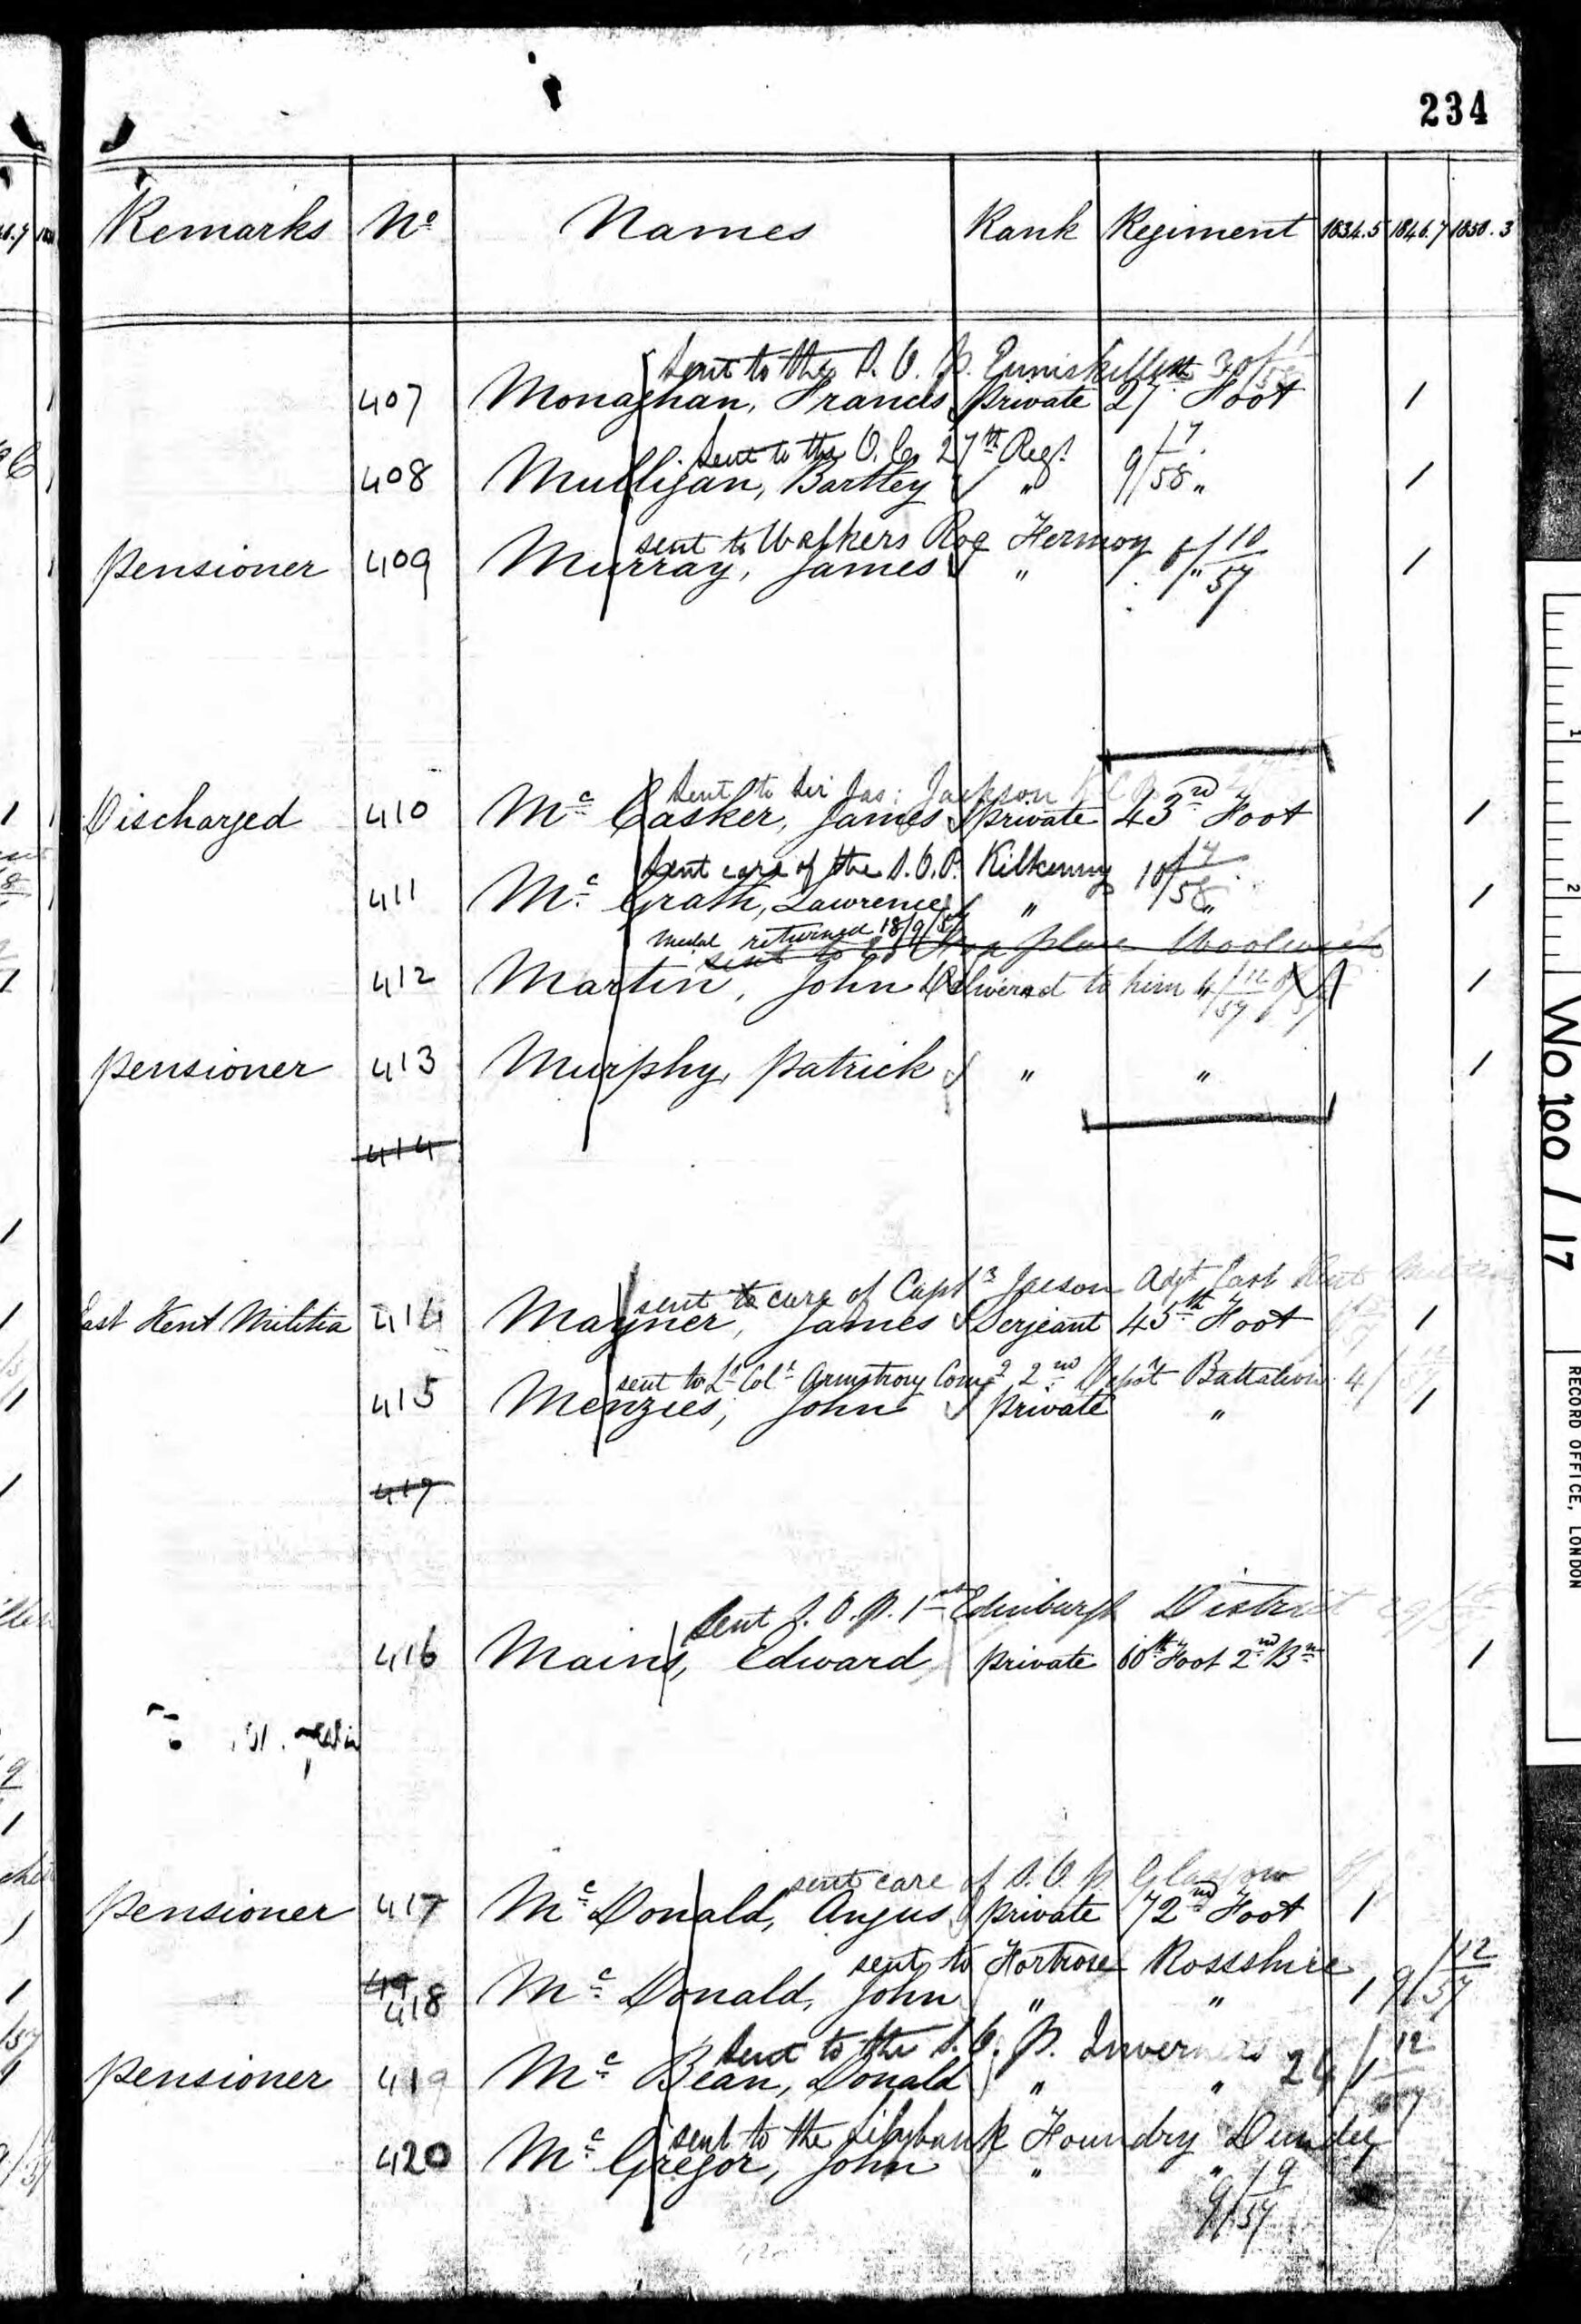 234
Remarks No Names Rank Regiment 1834.5 1846.7 1850.3
Sent to the S. O. P. Enniskillen 30/
407 Monaghan, Francis private 27th Foot 1
Sent to the O. C. 27th Regt 9/7/58
408 Mulligan, Bartley " " 1
sent to Walkers Row Fermoy 6/10/57
pensioner 409 Murray, James " " 1
Sent to Sir Jas: Jackson K C B
Discharged 410 Mc Casker, James private 43rd Foot 1
Sent care of the S. O. P. Kilkenny 10/7/58
411 Mc Grath, Lawrence " " 1
Medal returned 18/9/57
sent to place Woolwich
412 Martin, John Delivered to him 4/12/57 1
pensioner 413 Murphy, Patrick " " 1
414
sent to care of Captn Jaeson Adjt East Kent
East Kent Militia 414 Mayner, James Serjeant 45th Foot 1
sent to Lt Colt Armstrong Comg 2nd Depot Battalion 4/12/57
415 Menzies, John private " 1
417
Sent S. O. P. 1st Edinburgh District 29/
416 Mains, Edward private 60th Foot 2nd Bn 1
sent care of S. O. P. Glasgow
pensioner 417 Mc Donald, Angus private 72nd Foot 1
sent to Fortrose Rossshire 9/12/57
418 Mc Donald, John " " 1
Sent to the S. O. P. Inverness 26/12/57
pensioner 419 Mc Bean, Donald " " 1
sent to the Lilybank Foundry Dundee
420 Mc Gregor, John " "
9/9/57
WO 100 / 17
1
2
RECORD OFFICE, LONDON